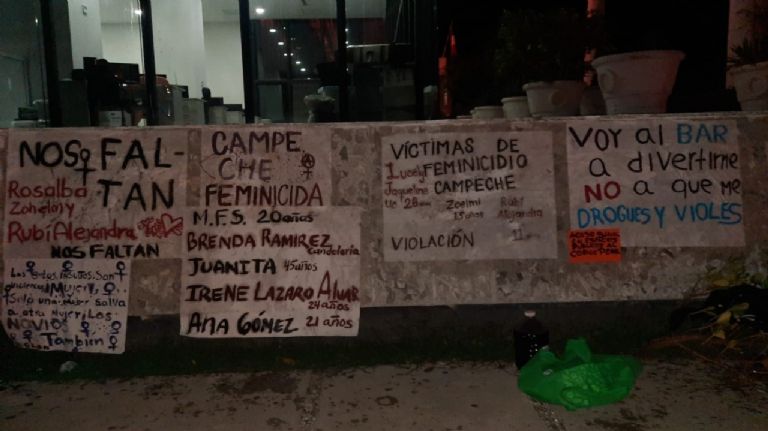 NOS FAL-
TAN
Rosalba
Rubí Alejandra
NOS FALTAN
MUJER
Solo una mujer salva
a otra mujer Los
NOVIOS
También
CAMPE
CHE
FEMINICIDA
M.F.S. 20 años
BRENDA RAMIREZ
Candelaria
JUANITA 45 años
IRENE LAZARO
24 años
ANA GÓMEZ 21 años
VÍCTIMAS DE
FEMINICIDIO
CAMPECHE
Jaqueline
Rubí
Alejandra
VIOLACIÓN
VOY al BAR
a divertirme
NO a que me
DROGUES Y VIOLES